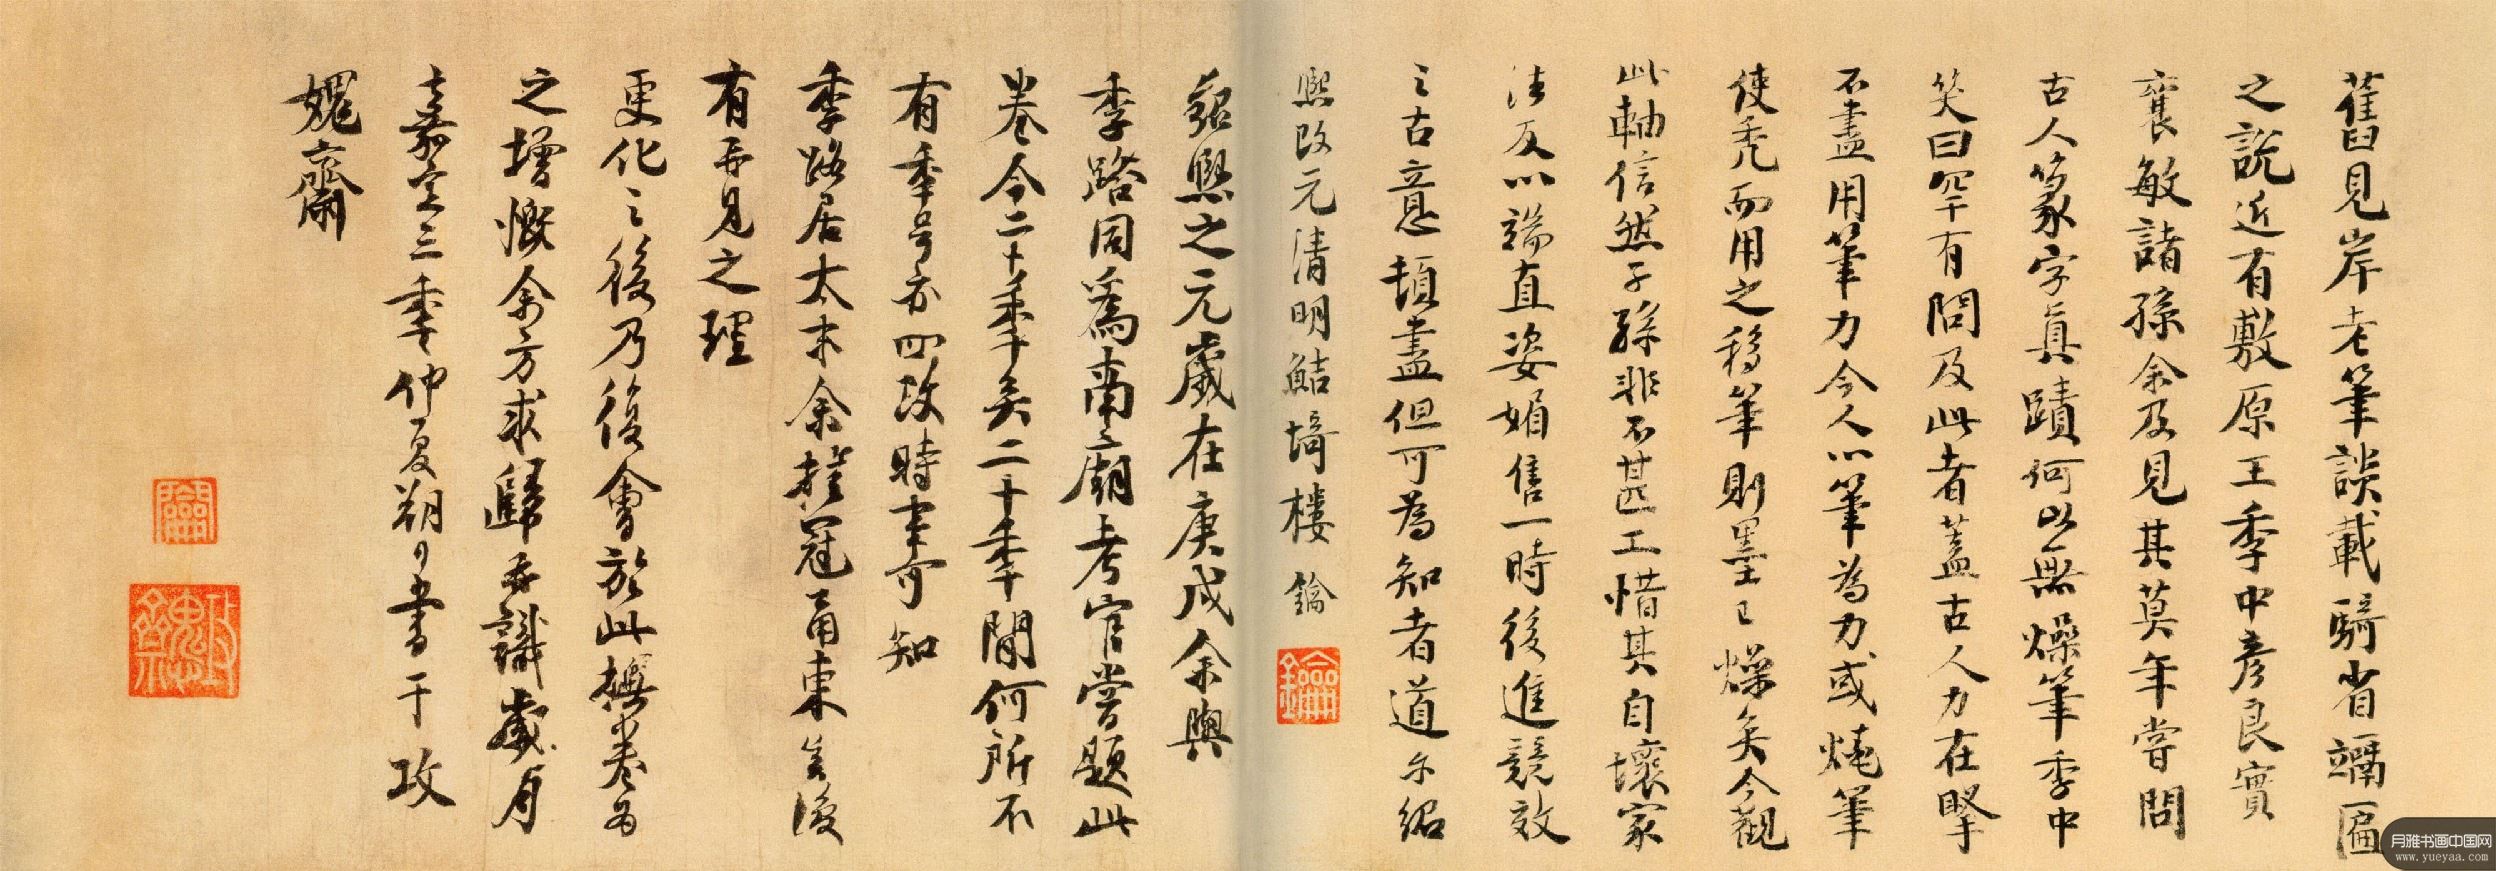 舊見岸老筆談載騎省㣆匾
之說近有敷原王季中彥良實
襄敏諸孫余及見其莫年嘗問
古人篆字真蹟何以無燥筆季中
笑曰罕有問及此者蓋古人力在掔
不盡用筆力今人以筆為力或燒筆
使禿而用之移筆則墨已燥矣今觀
此軸信然子孫非不甚工惜其自壞家
法反以端直姿媚售一時後進競效
之古意頓盡但可為知者道尔紹
熙改元清明鮚埼樓鑰
紹熙之元歲在庚戌余與
季路同為南廟考官嘗題此
卷今二十年矣二十年間何所不
有年号亦四改時事可知
季路居太末余挂冠甬東無復
有再見之理
更化之後乃復會於此撫卷為
之增慨余方求歸再識歲月
嘉定三年仲夏朔日書于攻
媿齋
鑰
攻媿齋
月雅书画中国网
www.yueyaa.com